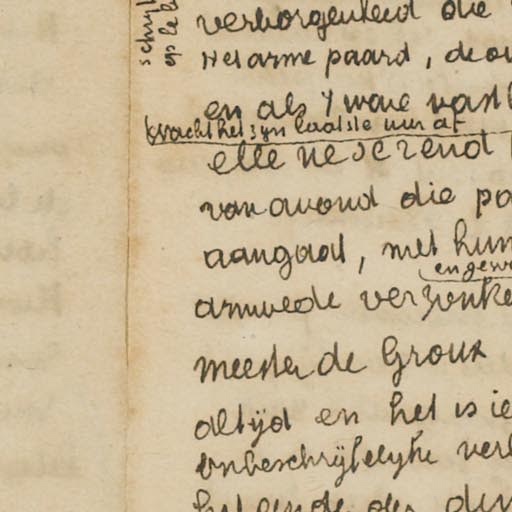 verborgenheid die
Het arme paard, de ou
en als 't ware vast
wacht het zijn laatste uur af
van avond die pa
aangaat, met hun
en gew
armoede verzonke
meester de Groux
altijd en het is ie
onbeschrijfelijke verl
het einde der